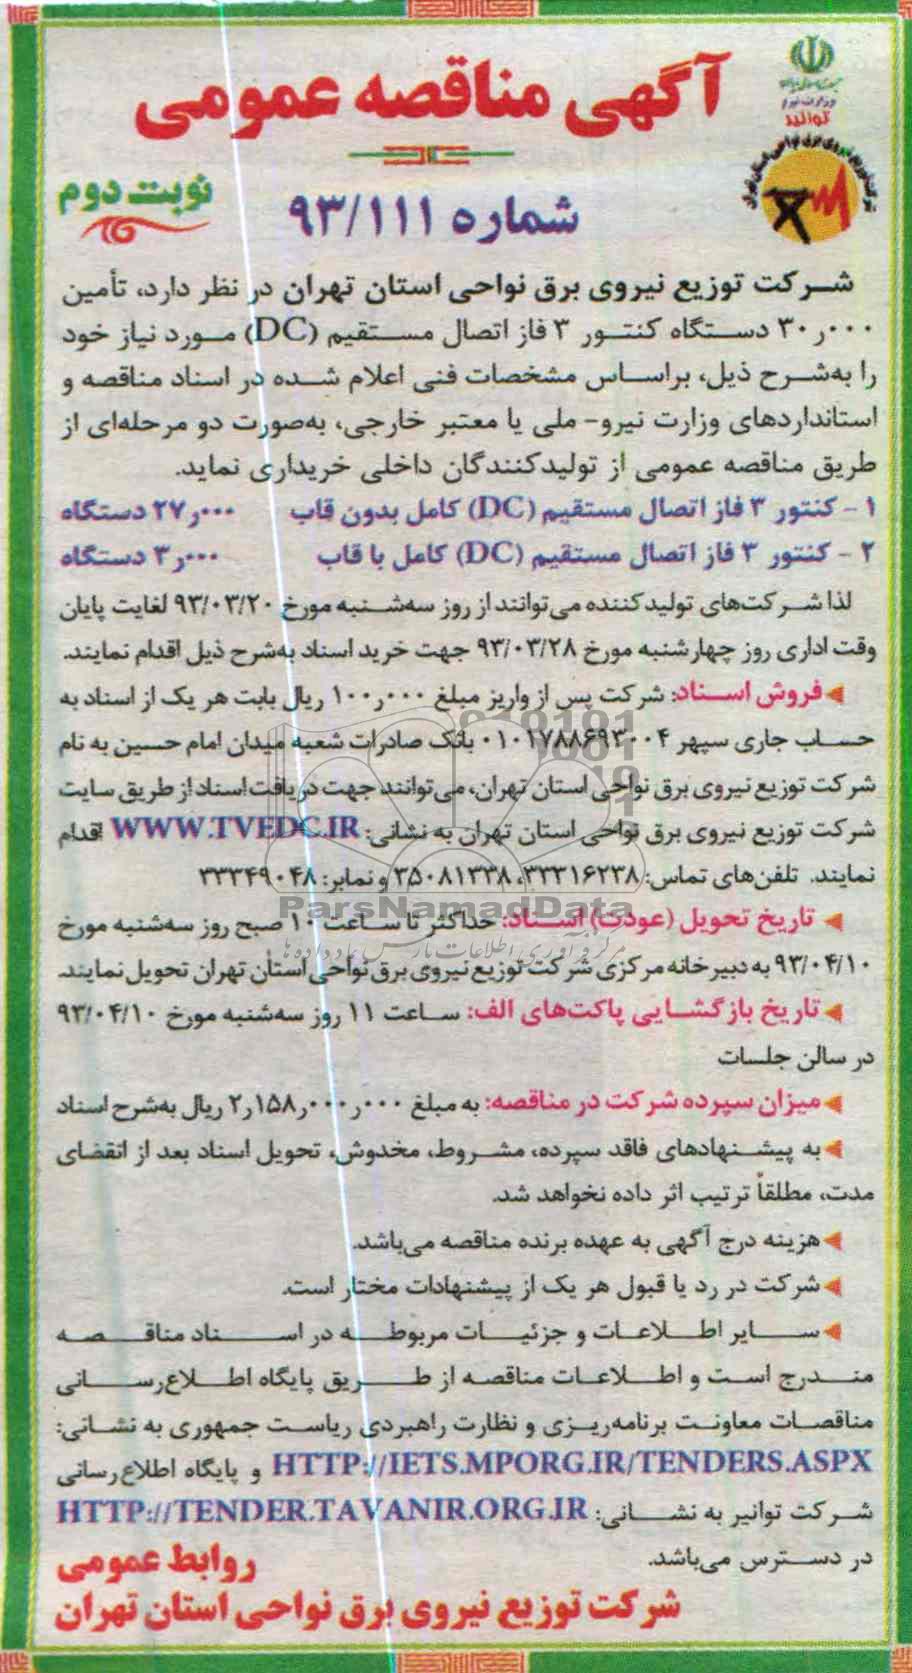 جمهوری اسلامی ایران
وزارت نیرو
توانیر
شرکت توزیع نیروی برق نواحی استان تهران
آگهی مناقصه عمومی
نوبت دوم
شماره ۹۳/۱۱۱
شرکت توزیع نیروی برق نواحی استان تهران در نظر دارد، تأمین
۳۰٫۰۰۰ دستگاه کنتور ۳ فاز اتصال مستقیم (DC) مورد نیاز خود
را به‌شرح ذیل، براساس مشخصات فنی اعلام شده در اسناد مناقصه و
استانداردهای وزارت نیرو- ملی یا معتبر خارجی، به‌صورت دو مرحله‌ای از
طریق مناقصه عمومی از تولیدکنندگان داخلی خریداری نماید.
۱ - کنتور ۳ فاز اتصال مستقیم (DC) کامل بدون قاب ۲۷٫۰۰۰ دستگاه
۲ - کنتور ۳ فاز اتصال مستقیم (DC) کامل با قاب ۳٫۰۰۰ دستگاه
لذا شرکت‌های تولیدکننده می‌توانند از روز سه‌شنبه مورخ ۹۳/۰۳/۲۰ لغایت پایان
وقت اداری روز چهارشنبه مورخ ۹۳/۰۳/۲۸ جهت خرید اسناد به‌شرح ذیل اقدام نمایند.
فروش اسناد: شرکت پس از واریز مبلغ ۱۰۰٫۰۰۰ ریال بابت هر یک از اسناد به
حساب جاری سپهر ۰۱۰۱۷۸۸۶۹۳۰۰۴ بانک صادرات شعبه میدان امام حسین به نام
شرکت توزیع نیروی برق نواحی استان تهران، می‌توانند جهت دریافت اسناد از طریق سایت
شرکت توزیع نیروی برق نواحی استان تهران به نشانی: WWW.TVEDC.IR اقدام
نمایند. تلفن‌های تماس: ۳۳۳۱۶۲۳۸، ۳۵۰۸۱۳۳۸ و نمابر: ۳۳۳۴۹۰۴۸
ParsNamadData
تاریخ تحویل (عودت) اسناد: حداکثر تا ساعت ۱۰ صبح روز سه‌شنبه مورخ
مرکز فرآوری اطلاعات پارس نماد داده‌ها
۹۳/۰۴/۱۰ به دبیرخانه مرکزی شرکت توزیع نیروی برق نواحی استان تهران تحویل نمایند.
تاریخ بازگشایی پاکت‌های الف: ساعت ۱۱ روز سه‌شنبه مورخ ۹۳/۰۴/۱۰
در سالن جلسات
میزان سپرده شرکت در مناقصه: به مبلغ ۲٫۱۵۸٫۰۰۰٫۰۰۰ ریال به‌شرح اسناد
به پیشنهادهای فاقد سپرده، مشروط، مخدوش، تحویل اسناد بعد از انقضای
مدت، مطلقاً ترتیب اثر داده نخواهد شد.
هزینه درج آگهی به عهده برنده مناقصه می‌باشد.
شرکت در رد یا قبول هر یک از پیشنهادات مختار است.
سایر اطلاعات و جزئیات مربوطه در اسناد مناقصه
مندرج است و اطلاعات مناقصه از طریق پایگاه اطلاع‌رسانی
مناقصات معاونت برنامه‌ریزی و نظارت راهبردی ریاست جمهوری به نشانی:
HTTP://IETS.MPORG.IR/TENDERS.ASPX و پایگاه اطلاع‌رسانی
شرکت توانیر به نشانی: HTTP://TENDER.TAVANIR.ORG.IR
در دسترس می‌باشد.
روابط عمومی
شرکت توزیع نیروی برق نواحی استان تهران